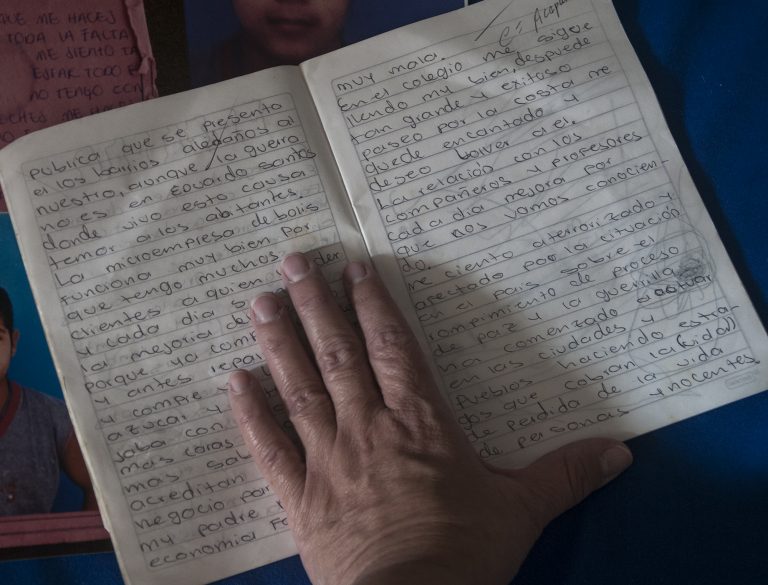 QUE ME HACES
TODA LA FALTA
ME SIENTO
ESTAR TODO
NO TENGO CON
publica que se presento
en los barrios aledaños al
nuestro, aunque la guerra
no es en Eduardo Santos
donde vivo esto causa
temor a los abitantes.
La microempresa de bolis
funciona muy bien por
que tengo muchos
clientes a quien
y cada dia
la mejoria
porque yo
y antes
y compre
azucar y
con
mas caras
mas
acreditan
negocio
my padre
economia
muy mala.
En el colegio me sigue
llendo muy bien, despuede
tan grande y exitoso
paseo por la costa me
quede encantado y
deseo bolver a el.
La relación con los
compañeros y profesores
cada dia mejora por
que nos vamos conocien-
do.
me ciento aterrorizado y
afectado por la cituación
en el pais sobre el
rompimiento de proceso
de paz y la guerrilla
ha comenzado a actuar
en las ciudades y
pueblos haciendo estra-
gos que cobran la (vida)
de perdida de la vida
de personas ynocentes.